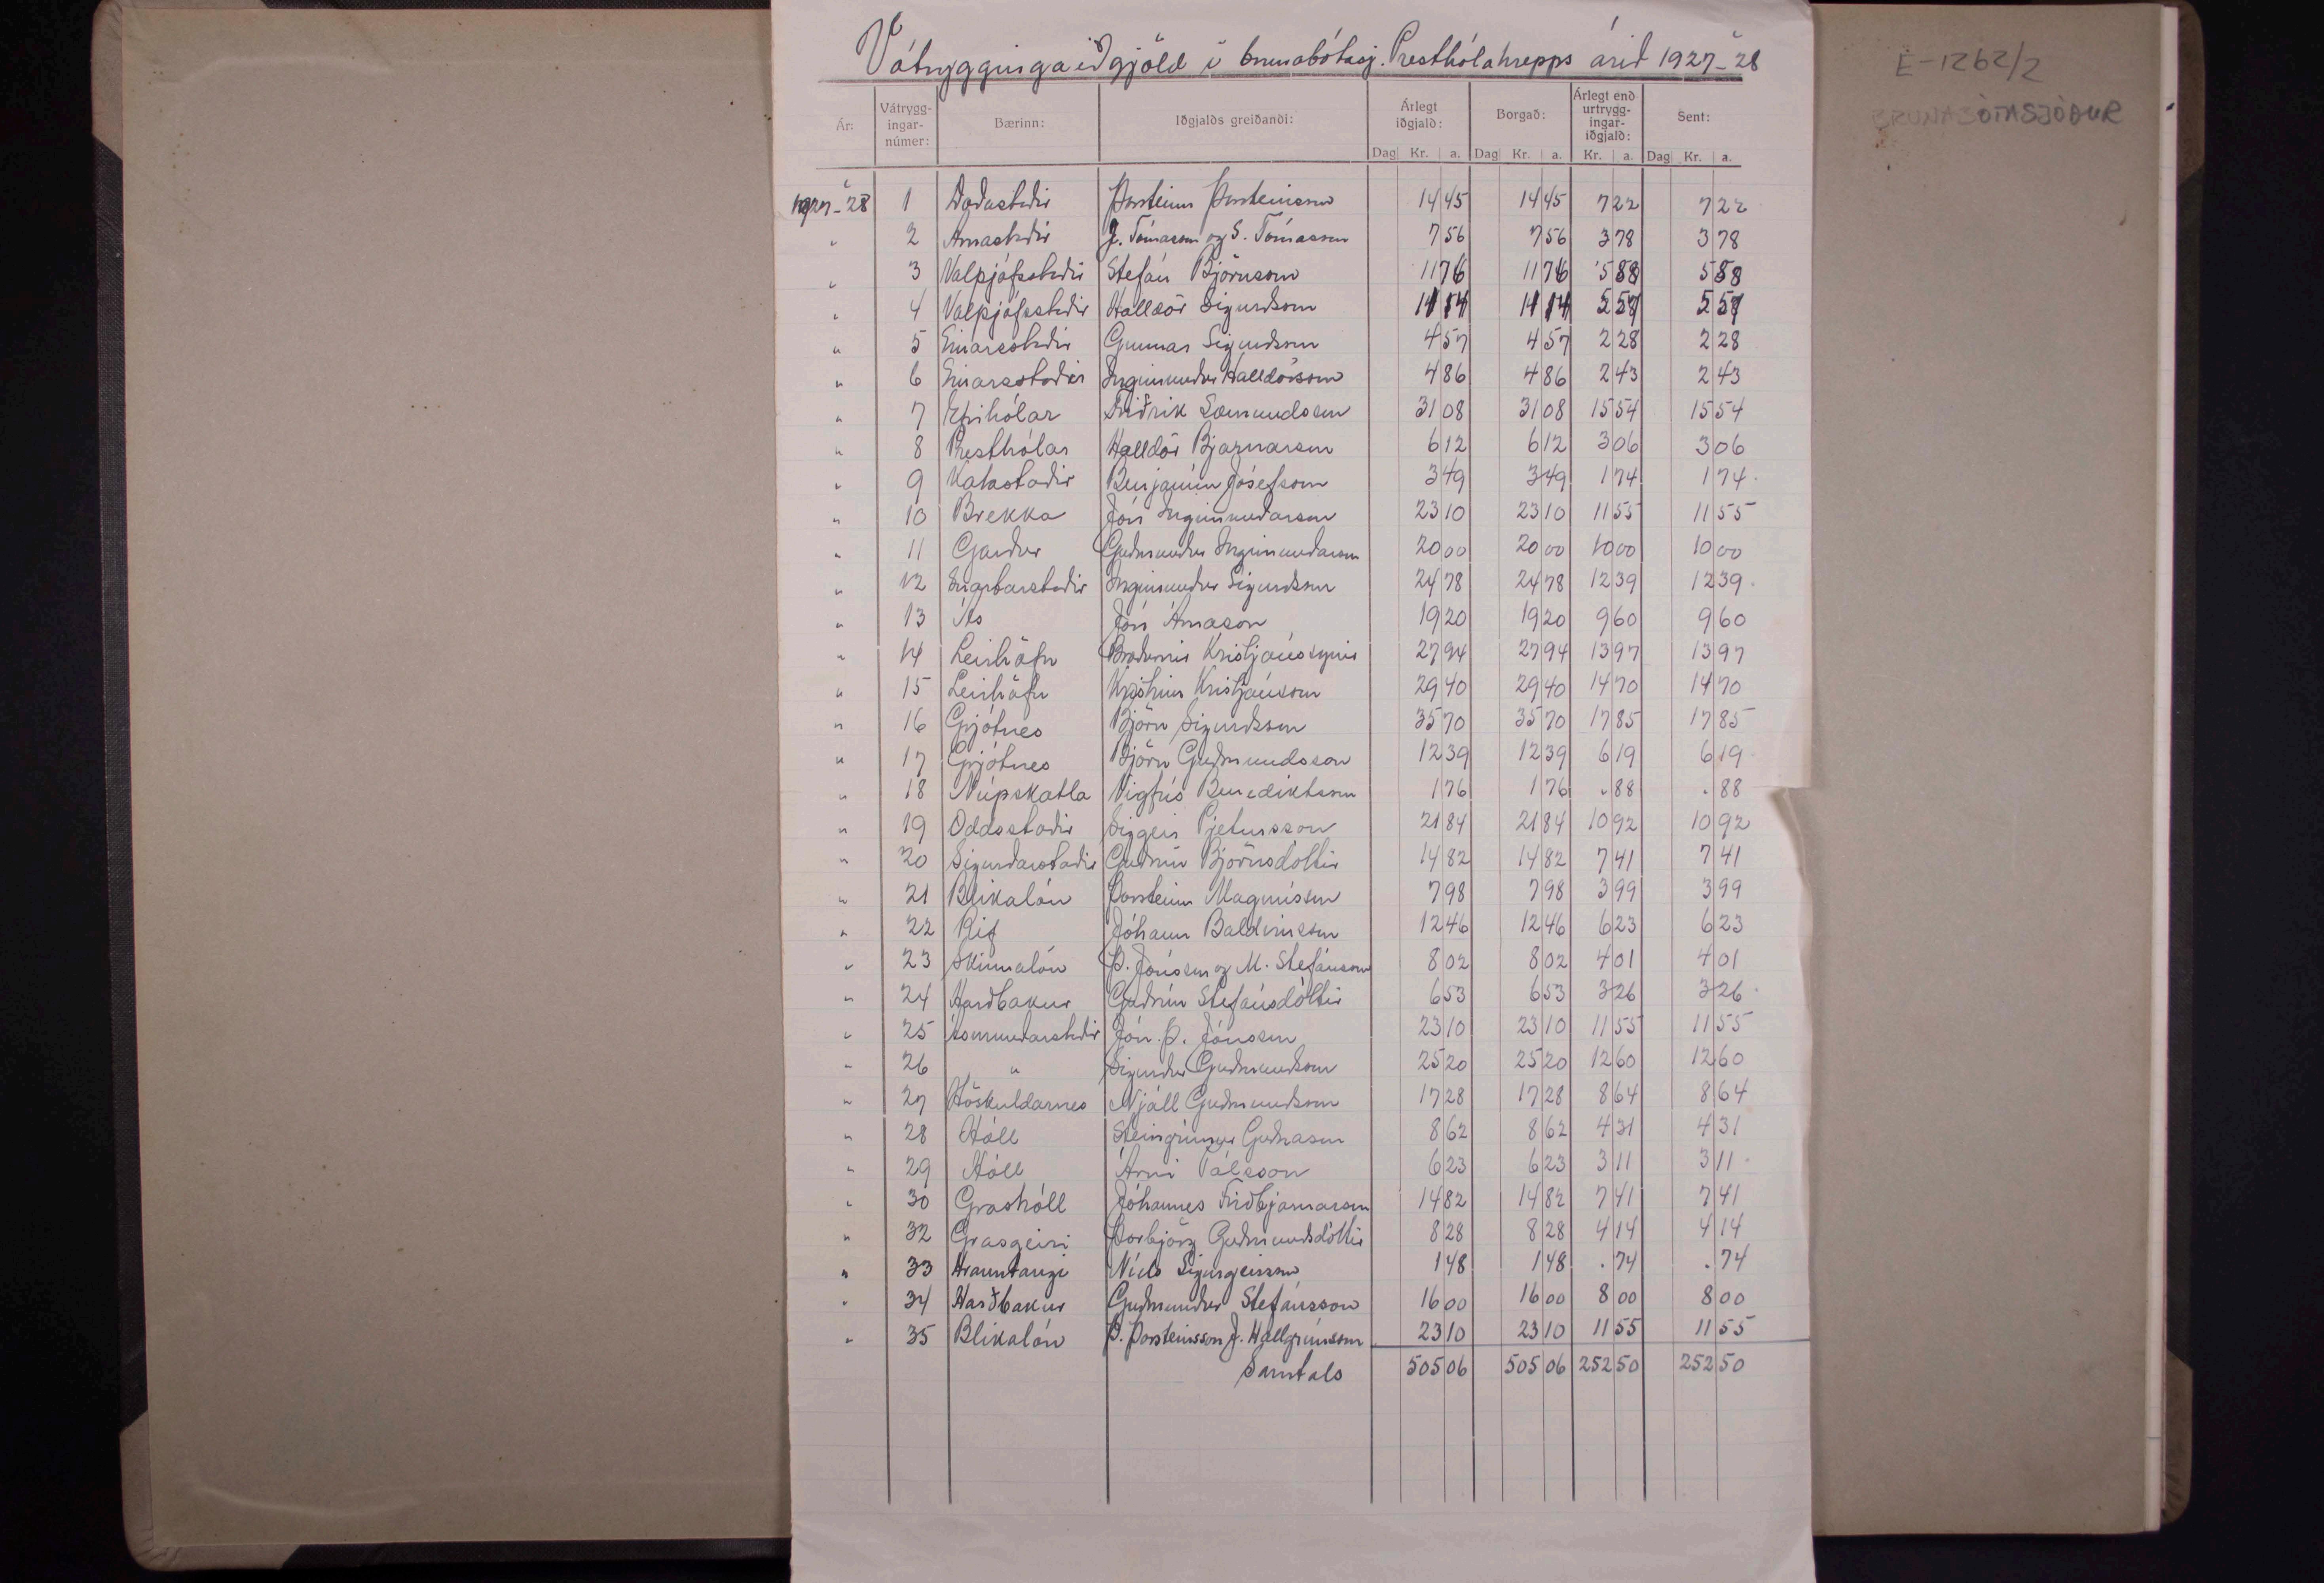 Vátryggingaiðgjöld í brunabótasj. Presthólahrepps árið 1927-28
E-1262/2
BRUNABÓTASJÓÐUR
Ár: Vátryggingar-númer: Bærinn: Iðgjalds greiðandi: Árlegt iðgjald: Borgað: Árlegt endurtryggingar-iðgjald: Sent:
Dag Kr. a. Dag Kr. a. Kr. a. Dag Kr. a.
1927-28 1 Daðastaðir Þorsteinn Þorsteinsson 14 45 14 45 7 22 7 22
" 2 Arnastaðir J. Tómasson og S. Tómasson 7 56 7 56 3 78 3 78
" 3 Valþjófsstaðir Stefán Björnsson 11 76 11 76 5 88 5 88
" 4 Valþjófsstaðir Halldór Sigurðsson 11 14 11 14 5 57 5 57
" 5 Einarsstaðir Gunnar Sigurðsson 4 57 4 57 2 28 2 28
" 6 Einarsstaðir Ingimundur Halldórsson 4 86 4 86 2 43 2 43
" 7 Efrihólar Friðrik Sæmundsson 31 08 31 08 15 54 15 54
" 8 Presthólar Halldór Bjarnarson 6 12 6 12 3 06 3 06
" 9 Katastaðir Benjamín Jósefsson 3 49 3 49 1 74 1 74
" 10 Brekka Jón Ingimundarson 23 10 23 10 11 55 11 55
" 11 Garður Guðmundur Ingimundarson 20 00 20 00 10 00 10 00
" 12 Snartarstaðir Ingimundur Sigurðsson 24 78 24 78 12 39 12 39
" 13 Ás Jón Árnason 19 20 19 20 9 60 9 60
" 14 Leirhöfn Bræðurnir Kristjánssynir 27 94 27 94 13 97 13 97
" 15 Leirhöfn Kristinn Kristjánsson 29 40 29 40 14 70 14 70
" 16 Grjótnes Björn Sigurðsson 35 70 35 70 17 85 17 85
" 17 Grjótnes Björn Guðmundsson 12 39 12 39 6 19 6 19
" 18 Núpskatla Vigfús Benediktsson 1 76 1 76 . 88 . 88
" 19 Oddsstaðir Siggeir Pjetursson 21 84 21 84 10 92 10 92
" 20 Sigurðarstaðir Guðrún Björnsdóttir 14 82 14 82 7 41 7 41
" 21 Blikalón Þorsteinn Magnússon 7 98 7 98 3 99 3 99
" 22 Rif Jóhann Baldvinsson 12 46 12 46 6 23 6 23
" 23 Skinnalón Þ. Jónsson og M. Stefánsson 8 02 8 02 4 01 4 01
" 24 Harðbakur Guðrún Stefánsdóttir 6 53 6 53 3 26 3 26
" 25 Ásmundarstaðir Jón. Þ. Jónsson 23 10 23 10 11 55 11 55
" 26 " Sigurður Guðmundsson 25 20 25 20 12 60 12 60
" 27 Höskuldarnes Njáll Guðmundsson 17 28 17 28 8 64 8 64
" 28 Hóll Steingrímur Guðnason 8 62 8 62 4 31 4 31
" 29 Hóll Árni Pálsson 6 23 6 23 3 11 3 11
" 30 Grashóll Jóhannes Friðbjarnarson 14 82 14 82 7 41 7 41
" 32 Grasgeiri Þorbjörg Guðmundsdóttir 8 28 8 28 4 14 4 14
" 33 Hrauntangi Níels Sigurgeirsson 1 48 1 48 . 74 . 74
" 34 Harðbakur Guðmundur Stefánsson 16 00 16 00 8 00 8 00
" 35 Blikalón Þ. Þorsteinsson J. Hallgrímsson 23 10 23 10 11 55 11 55
Samtals 505 06 505 06 252 50 252 50